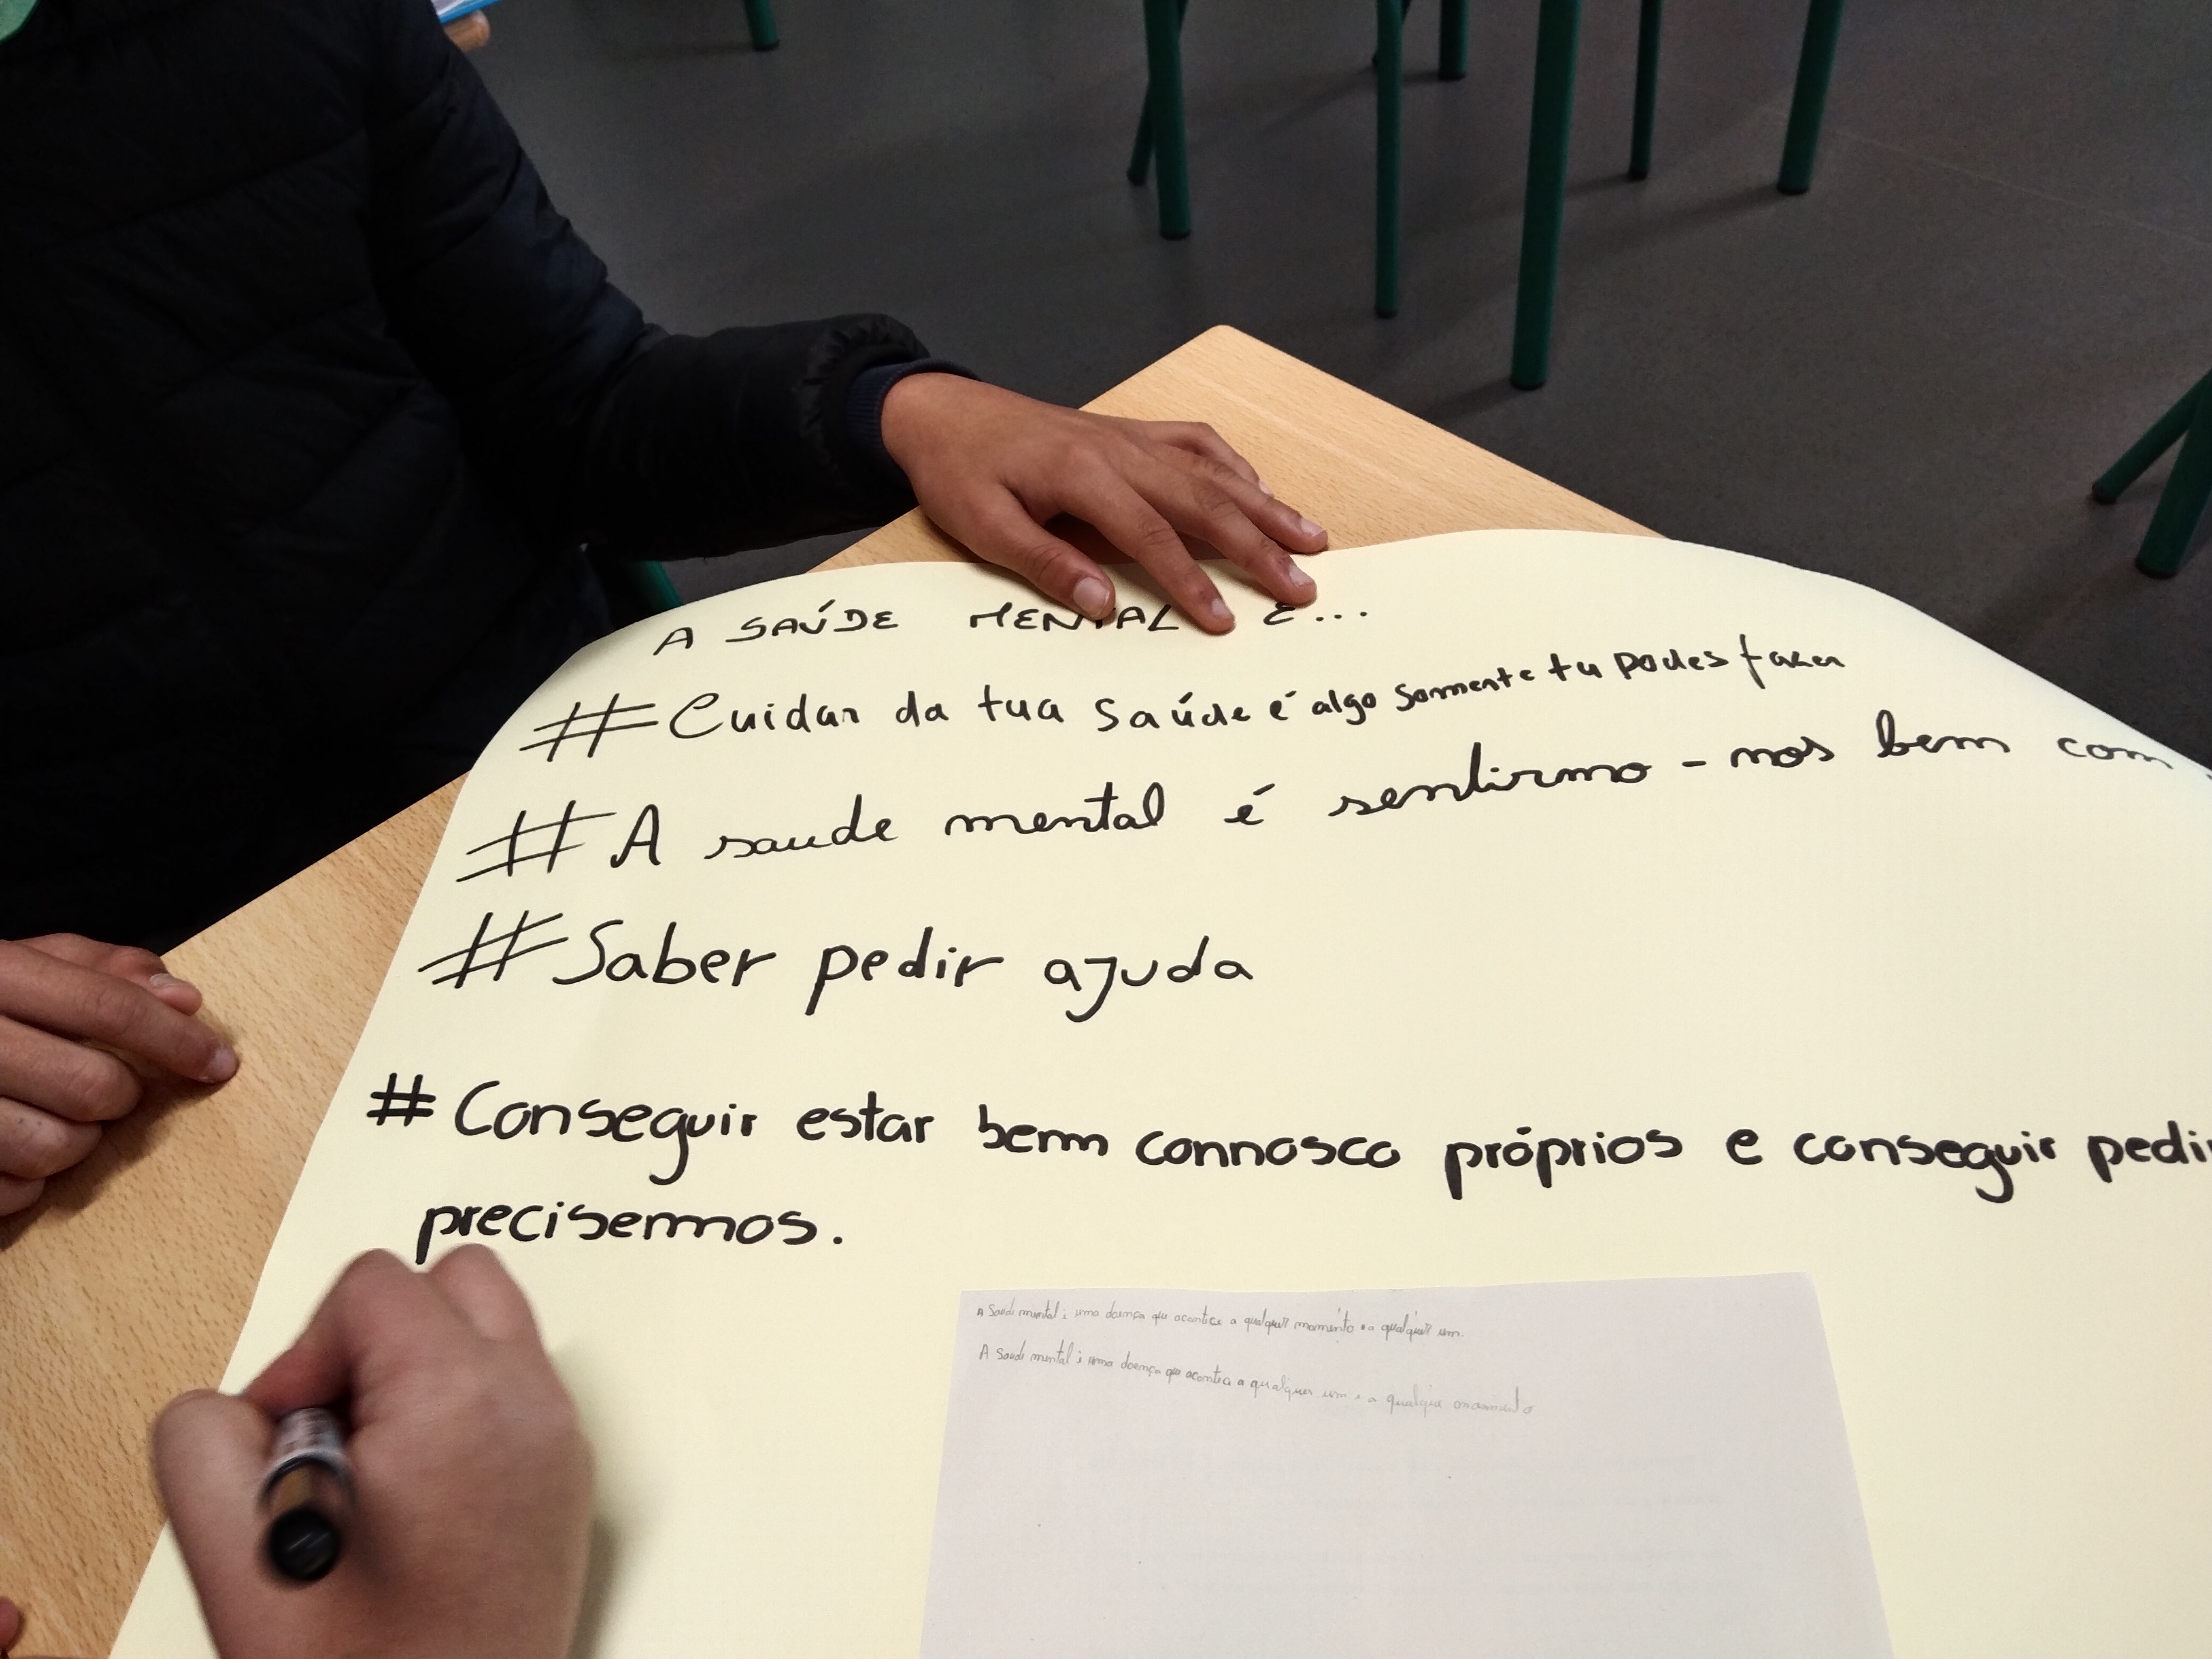 A SAÚDE MENTAL É...
# Cuidar da tua saúde é algo somente tu podes fazer
# A saude mental é sentirmo-nos bem com
# Saber pedir ajuda
# Conseguir estar bem connosco próprios e conseguir pedir
precisermos.
A Saude mental é uma doença que acontece a qualquer momento e a qualquer um.
A Saude mental é uma doença que acontece a qualquer um e a qualquer